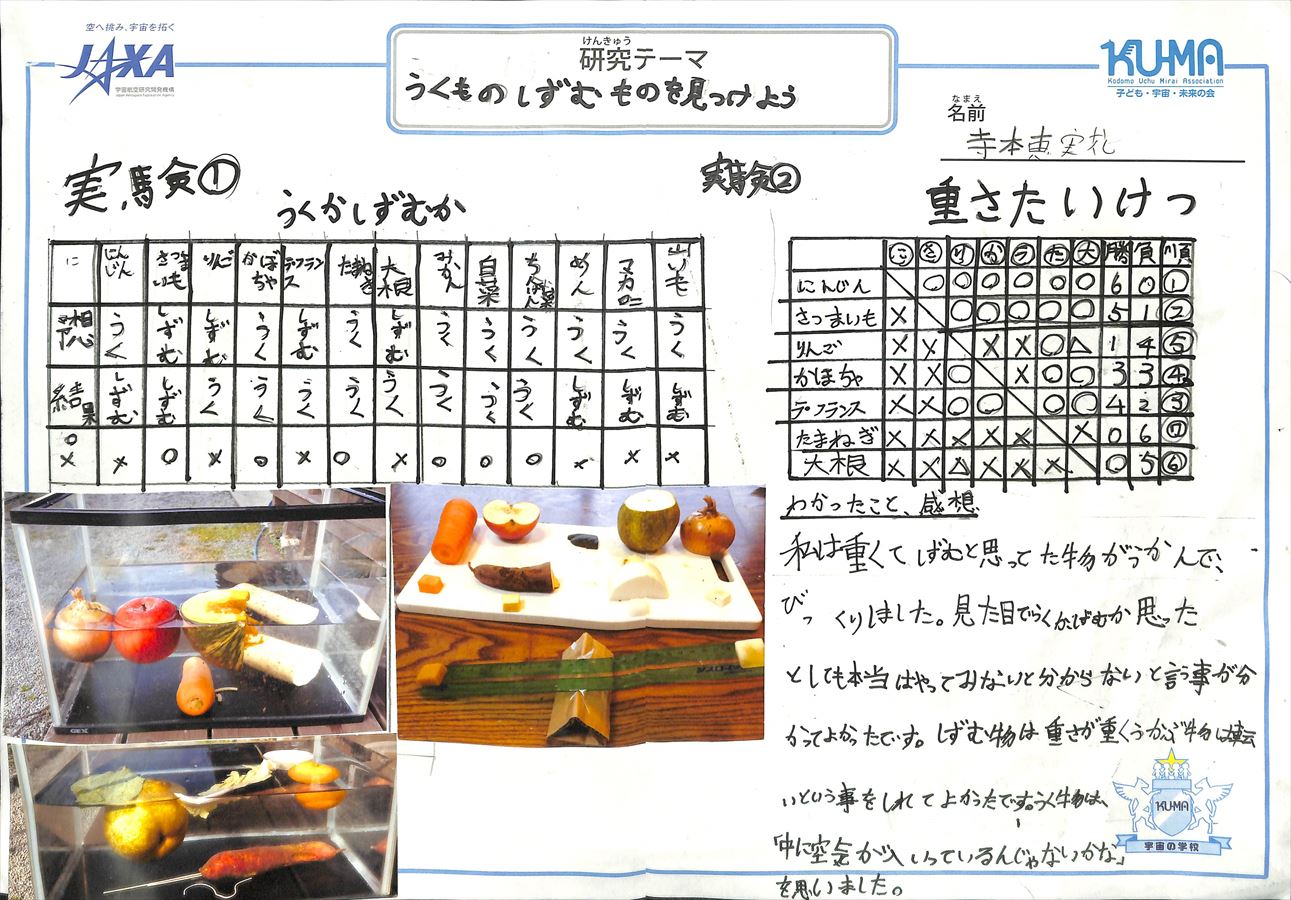 空へ挑み、宇宙を拓く
JAXA
宇宙航空研究開発機構
Japan Aerospace Exploration Agency
けんきゅう
研究テーマ
うくものしずむものを見つけよう
KUMA
Kodomo Uchu Mirai Association
子ども・宇宙・未来の会
なまえ
名前
寺本恵実礼
実験①
うくかしずむか
に にんじん さつまいも りんご かぼちゃ デフランス たまねぎ 大根 みかん 白菜 ちんげん菜 めん マカロニ 山いも
予想 うく しずむ しずむ うく しずむ うく しずむ うく うく うく うく うく うく
結果 しずむ しずむ うく うく うく うく うく うく うく うく しずむ しずむ しずむ
○× × ○ × ○ × ○ × ○ ○ ○ × × ×
実験②
重さたいけつ
に さ り か ラ た 大 勝 負 順
にんじん ＼ ○ ○ ○ ○ ○ ○ 6 0 ①
さつまいも × ＼ ○ ○ ○ ○ ○ 5 1 ②
りんご × × ＼ × × ○ △ 1 4 ⑤
かぼちゃ × × ○ ＼ × ○ ○ 3 3 ④
デフランス × × ○ ○ ＼ ○ ○ 4 2 ③
たまねぎ × × × × × ＼ × 0 6 ⑦
大根 × × △ × × × ＼ 0 5 ⑥
わかったこと、感想
私は重くてしずむと思ってた物がうかんで、
びっくりしました。見た目でうくかしずむか思った
としても本当はやってみないと分からないと言う事が分
かってよかったです。しずむ物は重さが重くうかぶ物は軽
いという事をしれてよかったです。うく物は、
「中に空気が入っているんじゃないかな」
を思いました。
GEX
KUMA
宇宙の学校